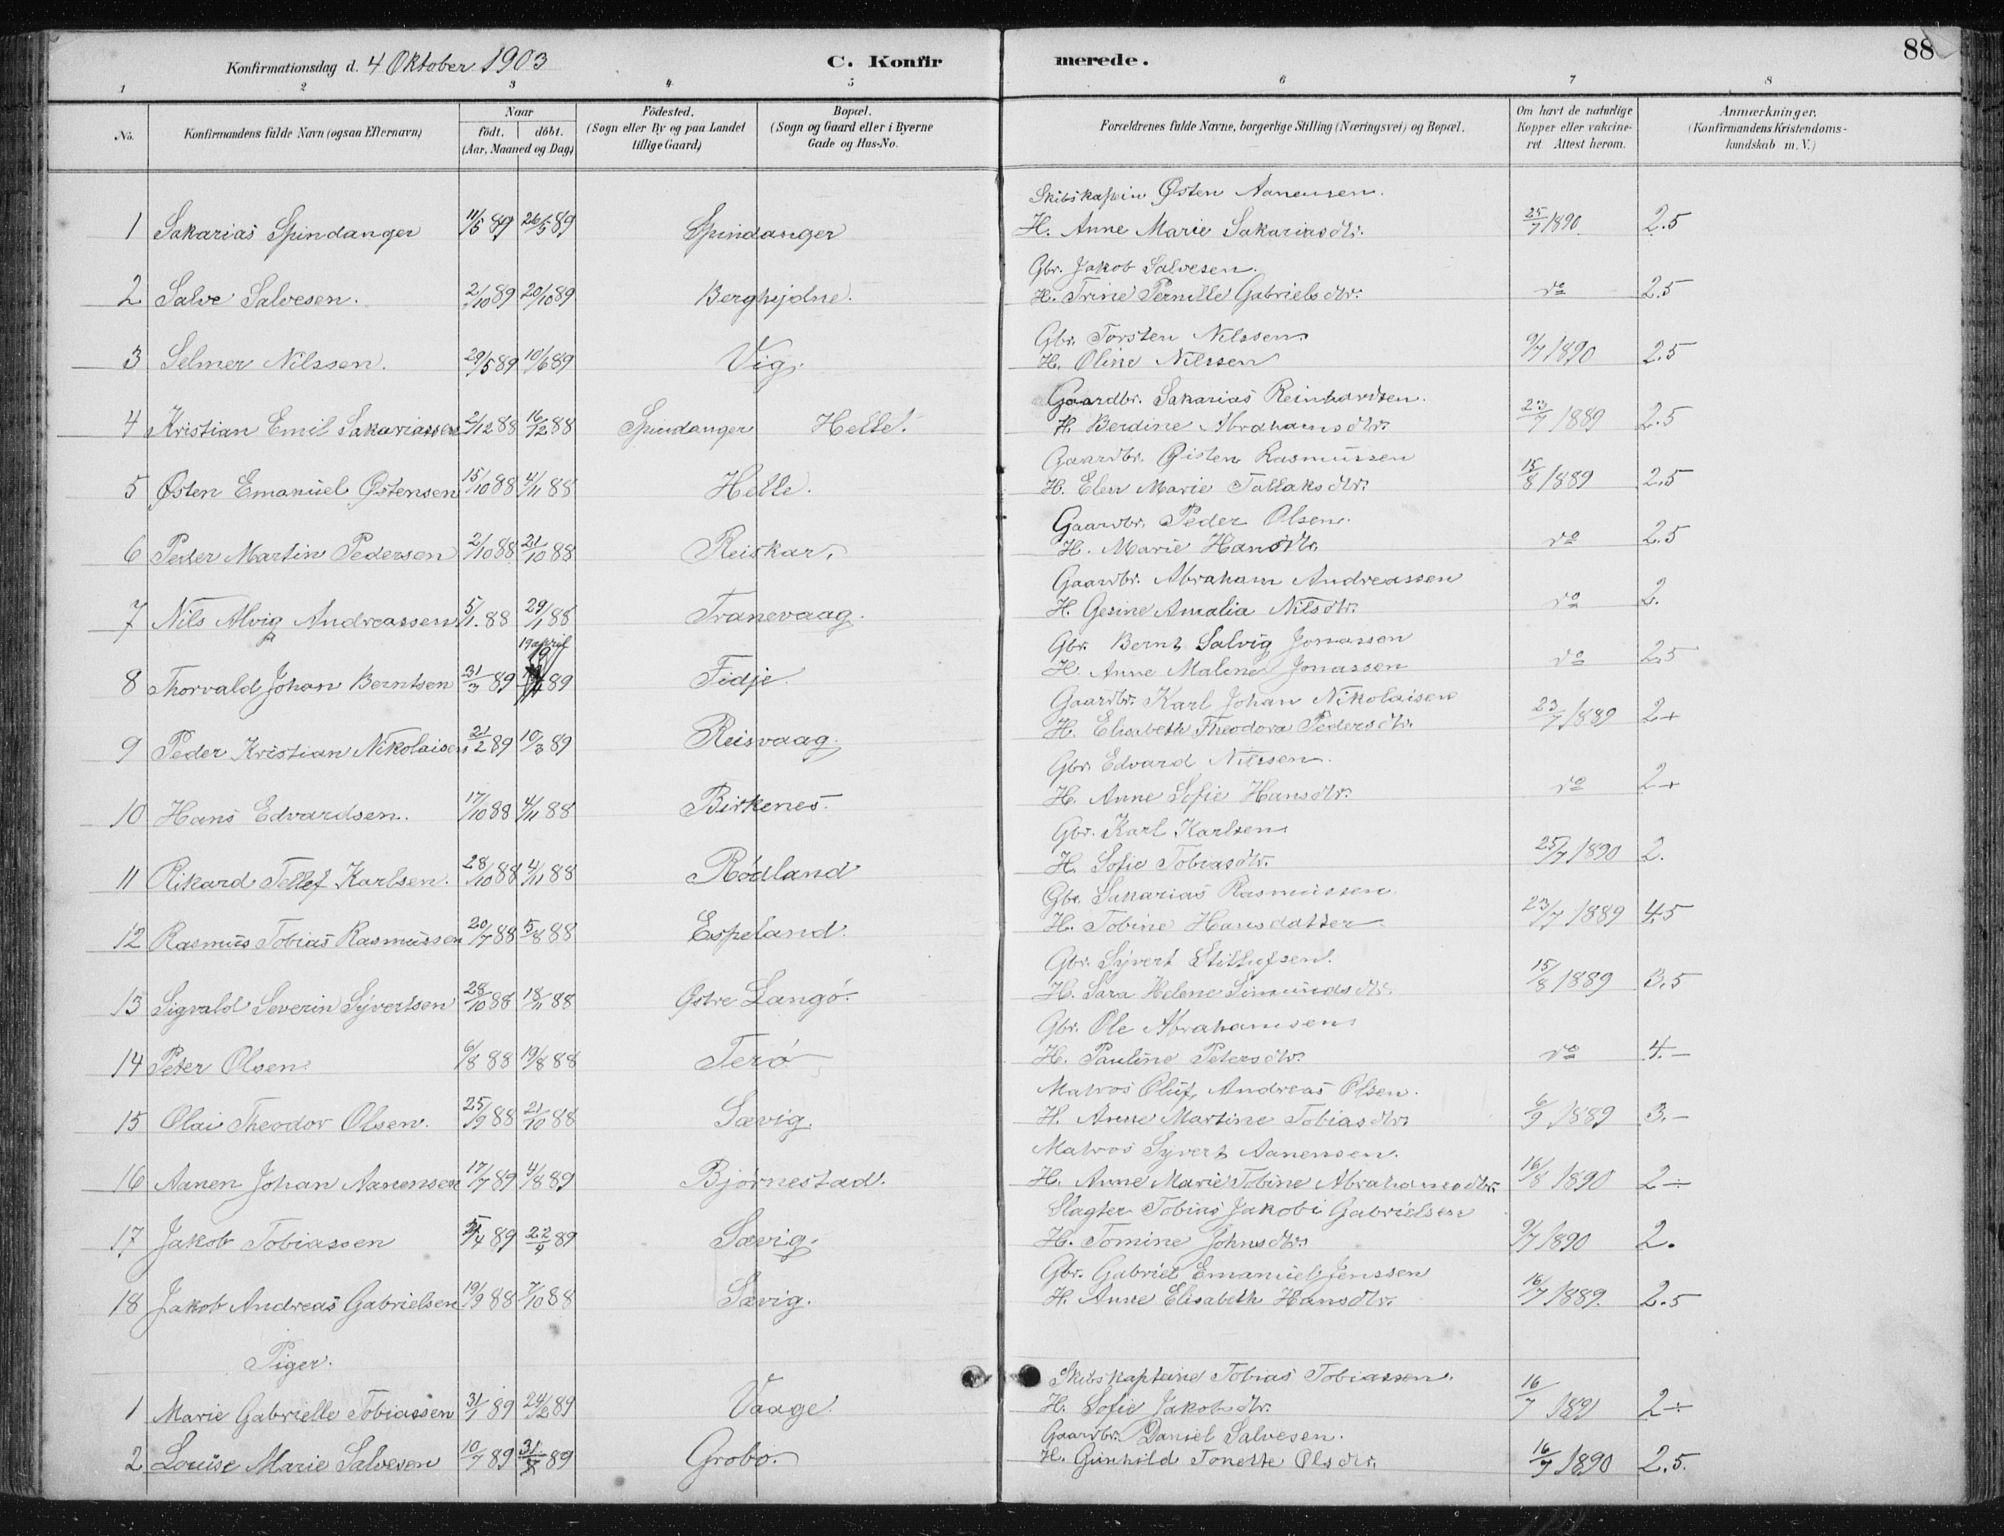 88
Konfirmationsdag d. 4 Oktober 1903
C. Konfirmerede.
1 2 3 4 5 6 7 8
No. Konfirmandens fulde Navn (ogsaa Efternavn) Naar födt. döbt. (Aar, Maaned og Dag) Födested. (Sogn eller By og paa Landet tillige Gaard) Bopæl. (Sogn og Gaard eller i Byerne Gade og Hus-No. Forældrenes fulde Navne, borgerlige Stilling (Næringsvei) og Bopæl. Om havt de naturlige Kopper eller vakcineret. Attest herom. Anmærkninger. (Konfirmandens Kristendomskundskab m. V.)
Skibskaptein Østen Aanensen.
1 Sakarias Spindanger 11/5 89 26/5 89 Spindanger H. Anne Marie Sakariasdtr. 25/7 1890 2.5
Gbr. Jakob Salvesen.
2 Salve Salvesen. 2/10 89 20/10 89 Berghejdne. H. Trine Pernille Gabrielsdtr. do 2.5
Gbr. Torsten Nilssen.
3 Selmer Nilssen. 29/5 89 10/6 89 Vig. H. Oline Nilssen 9/7 1890 2.5
Gaardbr. Sakarias Reinhardsen.
4 Kristian Emil Sakariassen 2/12 88 16/12 88 Spindanger Helle. H. Berdine Abrahamsdtr. 23/7 1889 2.5
Gaardbr. Østen Rasmussen
5 Østen Emanuel Østensen 15/10 88 4/11 88 Helle. H. Elen Marie Tallaksdtr. 15/8 1889 2.5
Gaardbr. Peder Olsen.
6 Peder Martin Pedersen 2/10 88 21/10 88 Reiskar. H. Marie Hansdtr. do 2.5
Gaardbr. Abraham Andreassen
7 Nils Alvig Andreassen 5/1. 88 29/1 88 Tranevaag. H. Gesine Amalia Nilsdtr. do 2.
19 april
Gbr. Bernt Salvig Jonassen
8 Thorvald Johan Berntsen 31/3 89 89 Fidje. H. Anne Maline Jonassen do 2.5
Gaardbr. Karl Johan Nikolaisen
9 Peder Kristian Nikolaisen 21/2 89 10/3 89 Reisvaag. H. Elisabeth Theodora Pedersdtr. 23/7 1889 2+
Gbr. Edvard Nilssen.
10 Hans Edvardsen. 17/10 88 4/11 88 Birkenes. H. Anne Sofie Hansdtr. do 2+
Gbr. Karl Karlsen
11 Rikard Tellef Karlsen. 28/10 88 4/11 88 Rødland H. Sofie Tobiasdtr. 25/7 1890 2.
Gbr. Sakarias Rasmussen
12 Rasmus Tobias Rasmussen 20/7 88 5/8 88 Espeland. H. Tobine Hansdatter 23/7 1889 4.5
Gbr. Syvert
13 Sigvald Severin Syvertsen 28/10 88 18/11 88 Østre Langø. H. Sara Helene Simundsdtr. 15/8 1889 3.5
Gbr. Ole Abrahamsen
14 Peter Olsen 6/8 88 19/8 88 Terø H. Pauline Petersdtr. do 4.-
Matros Oluf Andreas Olsen.
15 Olai Theodor Olsen. 25/9 88 21/10 88 Sævig. H. Anne Martine Tobiasdtr. 6/9 1889 3.-
Matros Syvert Aanensen.
16 Aanen Johan Aanensen 17/7 89 4/8 89 Bjørnestad. H. Anne Marie Tobine Abrahamsdtr. 16/8 1890 2÷
Slagter Tobias Jakobi Gabrielsen
17 Jakob Tobiassen 5/4 89 22/9 89 Sævig. H. Tomine Johnsdtr. 9/7 1890 2.
Gbr. Gabriel Emanuel Jenssen
18 Jakob Andreas Gabrielsen 19/9 88 7/10 88 Sævig. H. Anne Elisabeth Hansdtr. 16/7 1889. 2.5
Piger.
Skibskapteine Tobias Tobiassen.
1 Marie Gabrielle Tobiassen 31/1 89 24/2 89 Vaage. H. Sofie Jakobsdtr. 16/7 1891 2÷
Gaardbr. Daniel Salvesen.
2 Louise Marie Salvesen 10/7 89 89 Grobo. H. Gunhild Tonette Olsdtr. 16/7 1890 2.5.